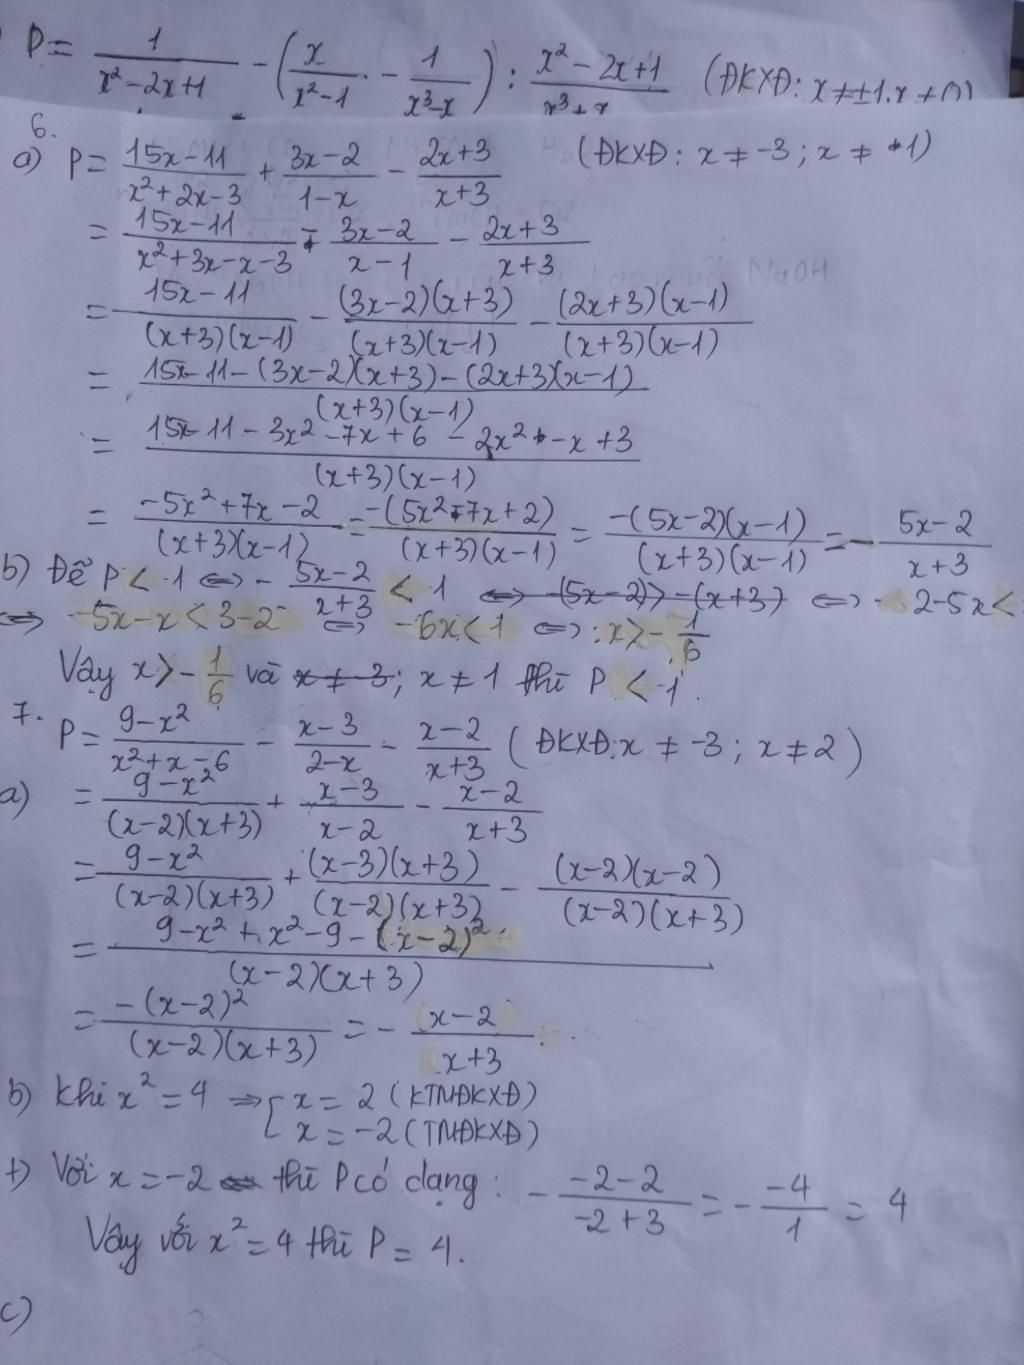 P = 1/(x² - 2x + 1) - (x/(x² - 1) - 1/(x³ - x)) : (x² - 2x + 1)/(x³ + x) (ĐKXĐ: x ≠ ±1, x ≠ 0)
6.
a) P = (15x - 11)/(x² + 2x - 3) + (3x - 2)/(1 - x) - (2x + 3)/(x + 3) (ĐKXĐ: x ≠ -3; x ≠ 1)
= (15x - 11)/(x² + 3x - x - 3) - (3x - 2)/(x - 1) - (2x + 3)/(x + 3)
= (15x - 11)/((x + 3)(x - 1)) - ((3x - 2)(x + 3))/((x + 3)(x - 1)) - ((2x + 3)(x - 1))/((x + 3)(x - 1))
= (15x - 11 - (3x - 2)(x + 3) - (2x + 3)(x - 1))/((x + 3)(x - 1))
= (15x - 11 - 3x² - 7x + 6 - 2x² - x + 3)/((x + 3)(x - 1))
= (-5x² + 7x - 2)/((x + 3)(x - 1)) = -(5x² - 7x + 2)/((x + 3)(x - 1)) = -(5x - 2)(x - 1)/((x + 3)(x - 1)) = - (5x - 2)/(x + 3)
b) Để P < 1 ⇔ - (5x - 2)/(x + 3) < 1 ⇔ -(5x - 2) > -(x + 3) ⇔ 2 - 5x <
⇔ -5x - x < 3 - 2 ⇔ -6x < 1 ⇔ x > - 1/6
Vậy x > - 1/6 và x ≠ 3; x ≠ 1 thì P < 1.
7.
P = (9 - x²)/(x² + x - 6) - (x - 3)/(2 - x) - (x - 2)/(x + 3) (ĐKXĐ: x ≠ -3; x ≠ 2)
a) = (9 - x²)/((x - 2)(x + 3)) + (x - 3)/(x - 2) - (x - 2)/(x + 3)
= (9 - x²)/((x - 2)(x + 3)) + ((x - 3)(x + 3))/((x - 2)(x + 3)) - ((x - 2)(x - 2))/((x - 2)(x + 3))
= (9 - x² + x² - 9 - (x - 2)²)/((x - 2)(x + 3))
= -(x - 2)²/((x - 2)(x + 3)) = - (x - 2)/(x + 3)
b) Khi x² = 4 ⇒ [ x = 2 (KTMĐKXĐ)
x = -2 (TMĐKXĐ)
+) Với x = -2 thì P có dạng: - (-2 - 2)/(-2 + 3) = - (-4)/1 = 4
Vậy với x² = 4 thì P = 4.
c)